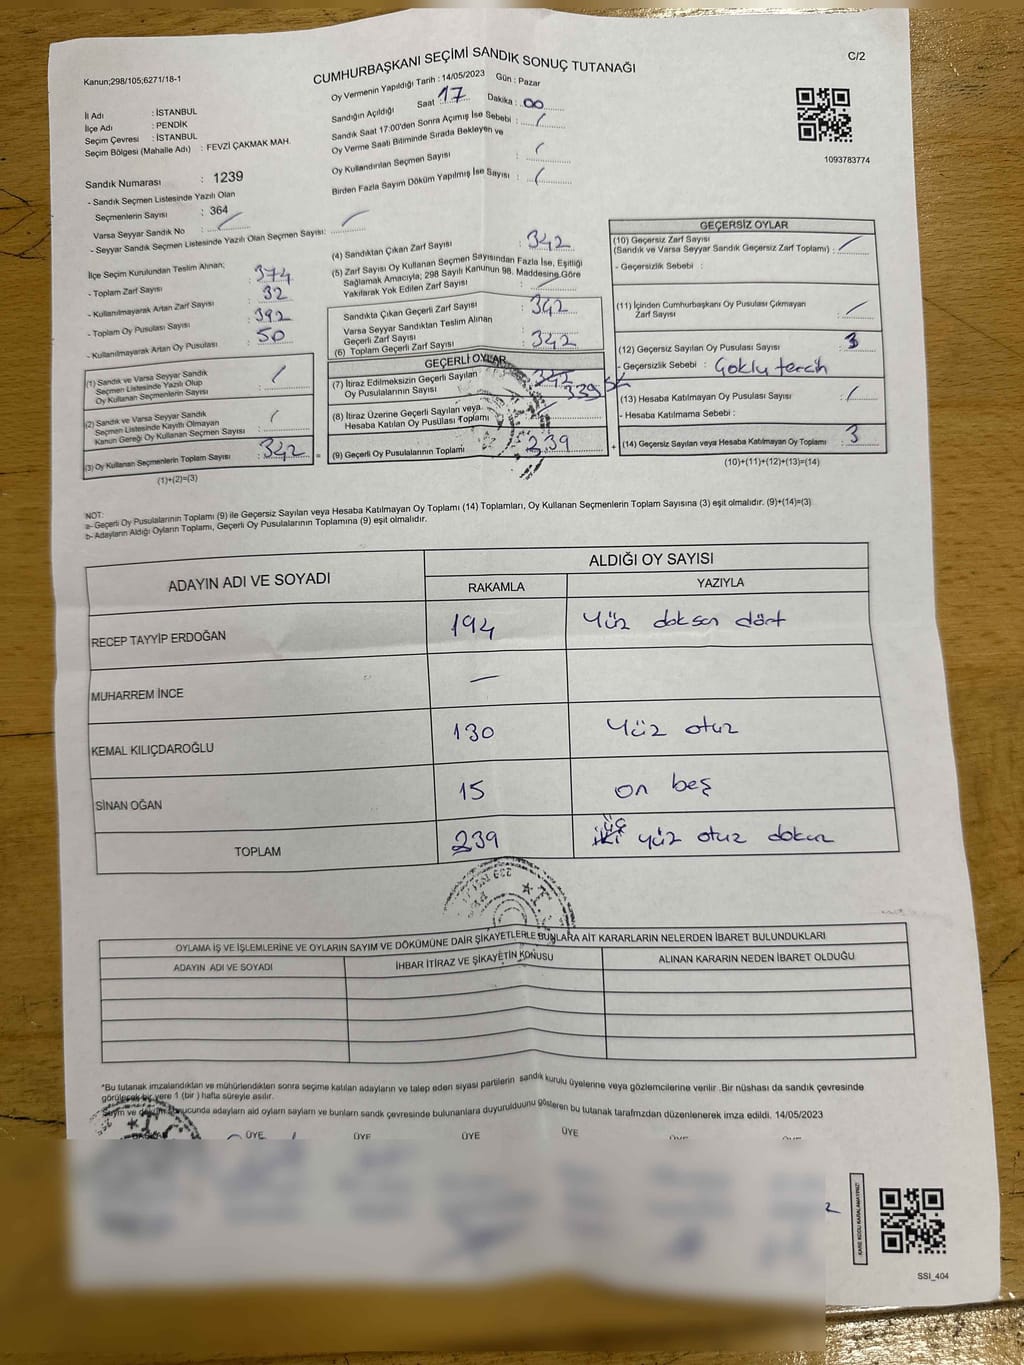 Kanun;298/105;6271/18-1
C/2
CUMHURBAŞKANI SEÇİMİ SANDIK SONUÇ TUTANAĞI
Oy Vermenin Yapıldığı Tarih : 14/05/2023 Gün : Pazar
Sandığın Açıldığı Saat 17 Dakika : 00
Sandık Saat 17:00'den Sonra Açımış İse Sebebi : /
Oy Verme Saati Bitiminde Sırada Bekleyen ve
Oy Kullandırılan Seçmen Sayısı : /
Birden Fazla Sayım Döküm Yapılmış İse Sayısı : /
1093783774
İl Adı : İSTANBUL
İlçe Adı : PENDİK
Seçim Çevresi : İSTANBUL
Seçim Bölgesi (Mahalle Adı) : FEVZİ ÇAKMAK MAH.
Sandık Numarası : 1239
- Sandık Seçmen Listesinde Yazılı Olan
Seçmenlerin Sayısı : 364
Varsa Seyyar Sandık No : /
- Seyyar Sandık Seçmen Listesinde Yazılı Olan Seçmen Sayısı: /
İlçe Seçim Kurulundan Teslim Alınan;
- Toplam Zarf Sayısı : 374
- Kullanılmayarak Artan Zarf Sayısı : 32
- Toplam Oy Pusulası Sayısı : 392
- Kullanılmayarak Artan Oy Pusulası : 50
(1) Sandık ve Varsa Seyyar Sandık
Seçmen Listesinde Yazılı Olup
Oy Kullanan Seçmenlerin Sayısı : /
(2) Sandık ve Varsa Seyyar Sandık
Seçmen Listesinde Kayıtlı Olmayan
Kanun Gereği Oy Kullanan Seçmen Sayısı : /
(3) Oy Kullanan Seçmenlerin Toplam Sayısı : 342 =
(1)+(2)=(3)
(4) Sandıktan Çıkan Zarf Sayısı : 342
(5) Zarf Sayısı Oy Kullanan Seçmen Sayısından Fazla İse, Eşitliği
Sağlamak Amacıyla; 298 Sayılı Kanunun 98. Maddesine Göre
Yakılarak Yok Edilen Zarf Sayısı : /
Sandıkta Çıkan Geçerli Zarf Sayısı : 342
Varsa Seyyar Sandıktan Teslim Alınan
Geçerli Zarf Sayısı
(6) Toplam Geçerli Zarf Sayısı : 342
GEÇERLİ OYLAR
(7) İtiraz Edilmeksizin Geçerli Sayılan
Oy Pusulasının Sayısı : 342 339
(8) İtiraz Üzerine Geçerli Sayılan veya
Hesaba Katılan Oy Pusulası Toplamı
(9) Geçerli Oy Pusulalarının Toplamı : 239 +
GEÇERSİZ OYLAR
(10) Geçersiz Zarf Sayısı
(Sandık ve Varsa Seyyar Sandık Geçersiz Zarf Toplamı) : /
- Geçersizlik Sebebi :
(11) İçinden Cumhurbaşkanı Oy Pusulası Çıkmayan
Zarf Sayısı : /
(12) Geçersiz Sayılan Oy Pusulası Sayısı : 3
- Geçersizlik Sebebi : Çoklu tercih
(13) Hesaba Katılmayan Oy Pusulası Sayısı : /
- Hesaba Katılmama Sebebi :
(14) Geçersiz Sayılan veya Hesaba Katılmayan Oy Toplamı : 3
(10)+(11)+(12)+(13)=(14)
NOT:
a- Geçerli Oy Pusulalarının Toplamı (9) ile Geçersiz Sayılan veya Hesaba Katılmayan Oy Toplamı (14) Toplamları, Oy Kullanan Seçmenlerin Toplam Sayısına (3) eşit olmalıdır. (9)+(14)=(3)
b- Adayların Aldığı Oyların Toplamı, Geçerli Oy Pusulalarının Toplamına (9) eşit olmalıdır.
ADAYIN ADI VE SOYADI
ALDIĞI OY SAYISI
RAKAMLA YAZIYLA
RECEP TAYYİP ERDOĞAN 194 Yüz doksan dört
MUHARREM İNCE —
KEMAL KILIÇDAROĞLU 130 Yüz otuz
SİNAN OĞAN 15 on beş
TOPLAM 239 iki üç yüz otuz dokuz
OYLAMA İŞ VE İŞLEMLERİNE VE OYLARIN SAYIM VE DÖKÜMÜNE DAİR ŞİKAYETLERLE BUNLARA AİT KARARLARIN NELERDEN İBARET BULUNDUKLARI
ADAYIN ADI VE SOYADI İHBAR İTİRAZ VE ŞİKAYETİN KONUSU ALINAN KARARIN NEDEN İBARET OLDUĞU
*Bu tutanak imzalandıktan ve mühürlendikten sonra seçime katılan adayların ve talep eden siyasi partilerin sandık kurulu üyelerine veya gözlemcilerine verilir .Bir nüshası da sandık çevresinde
görülecek bir yere 1 (bir ) hafta süreyle asılır.
Sayım ve döküm sonucunda adayların ald oyların sayların ve bunların sandık çevresinde bulunanlara duyurulduunu gösteren bu tutanak tarafmzdan düzenlenerek imza edildi. 14/05/2023
BAŞKAN ÜYE ÜYE ÜYE ÜYE ÜYE ÜYE
KARE KODU KARALAMAYINIZ!
SSI_404